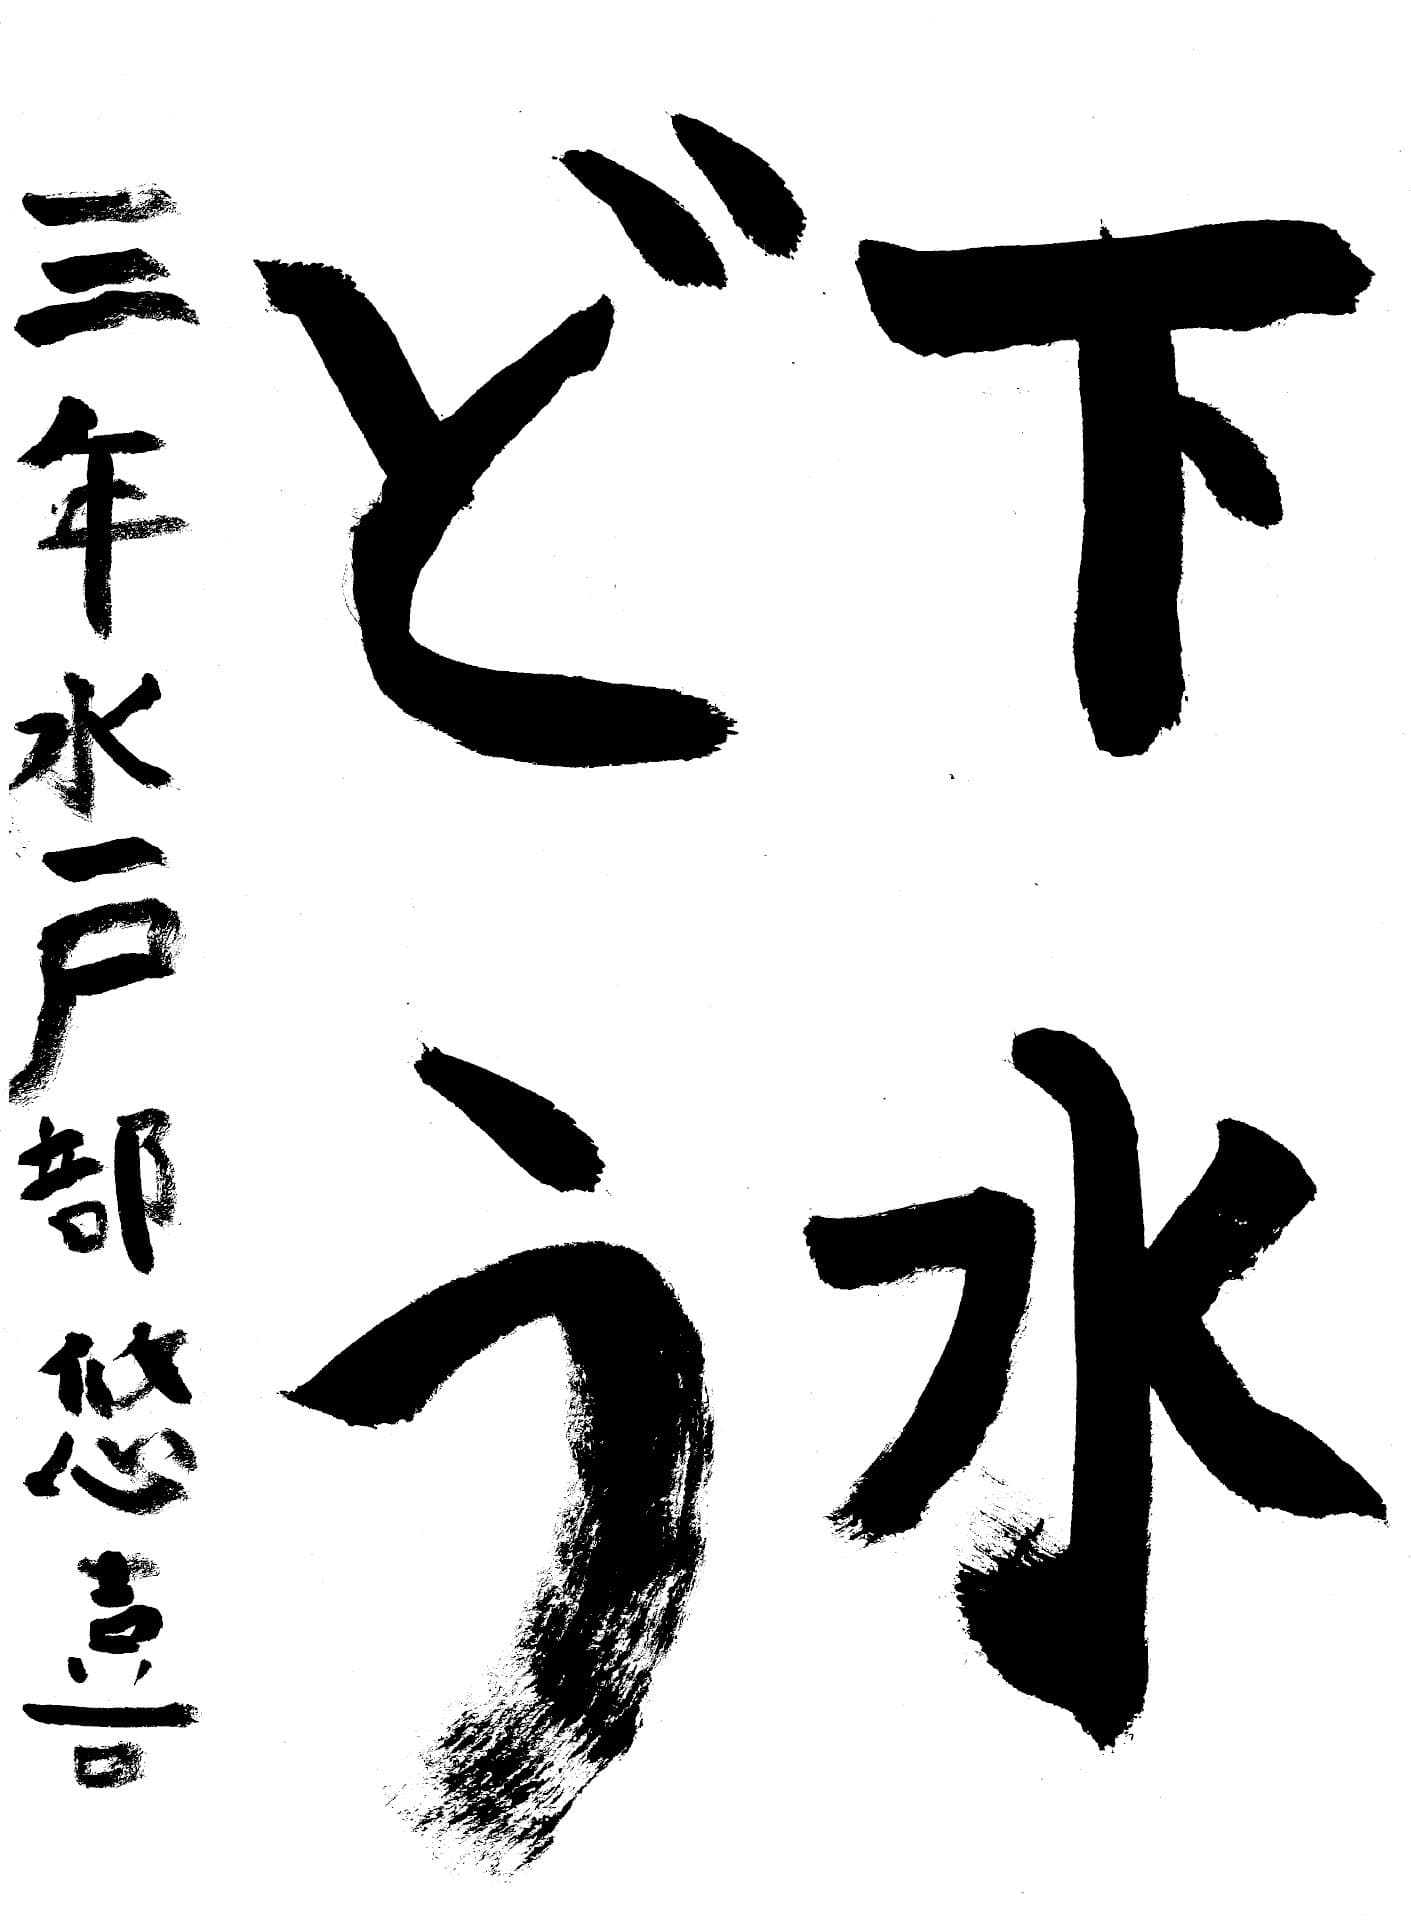 下水
どう
三年水戸部悠喜